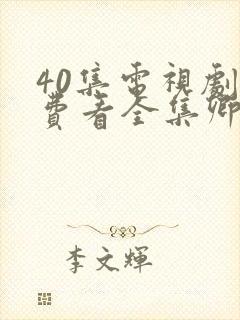 40集電視劇
費看全集卿
李文輝